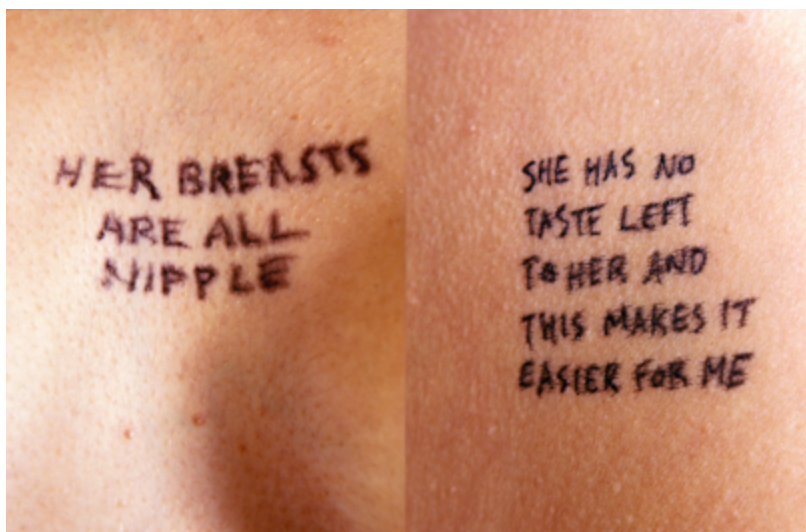 HER BREASTS
ARE ALL
NIPPLE
SHE HAS NO
TASTE LEFT
TO HER AND
THIS MAKES IT
EASIER FOR ME